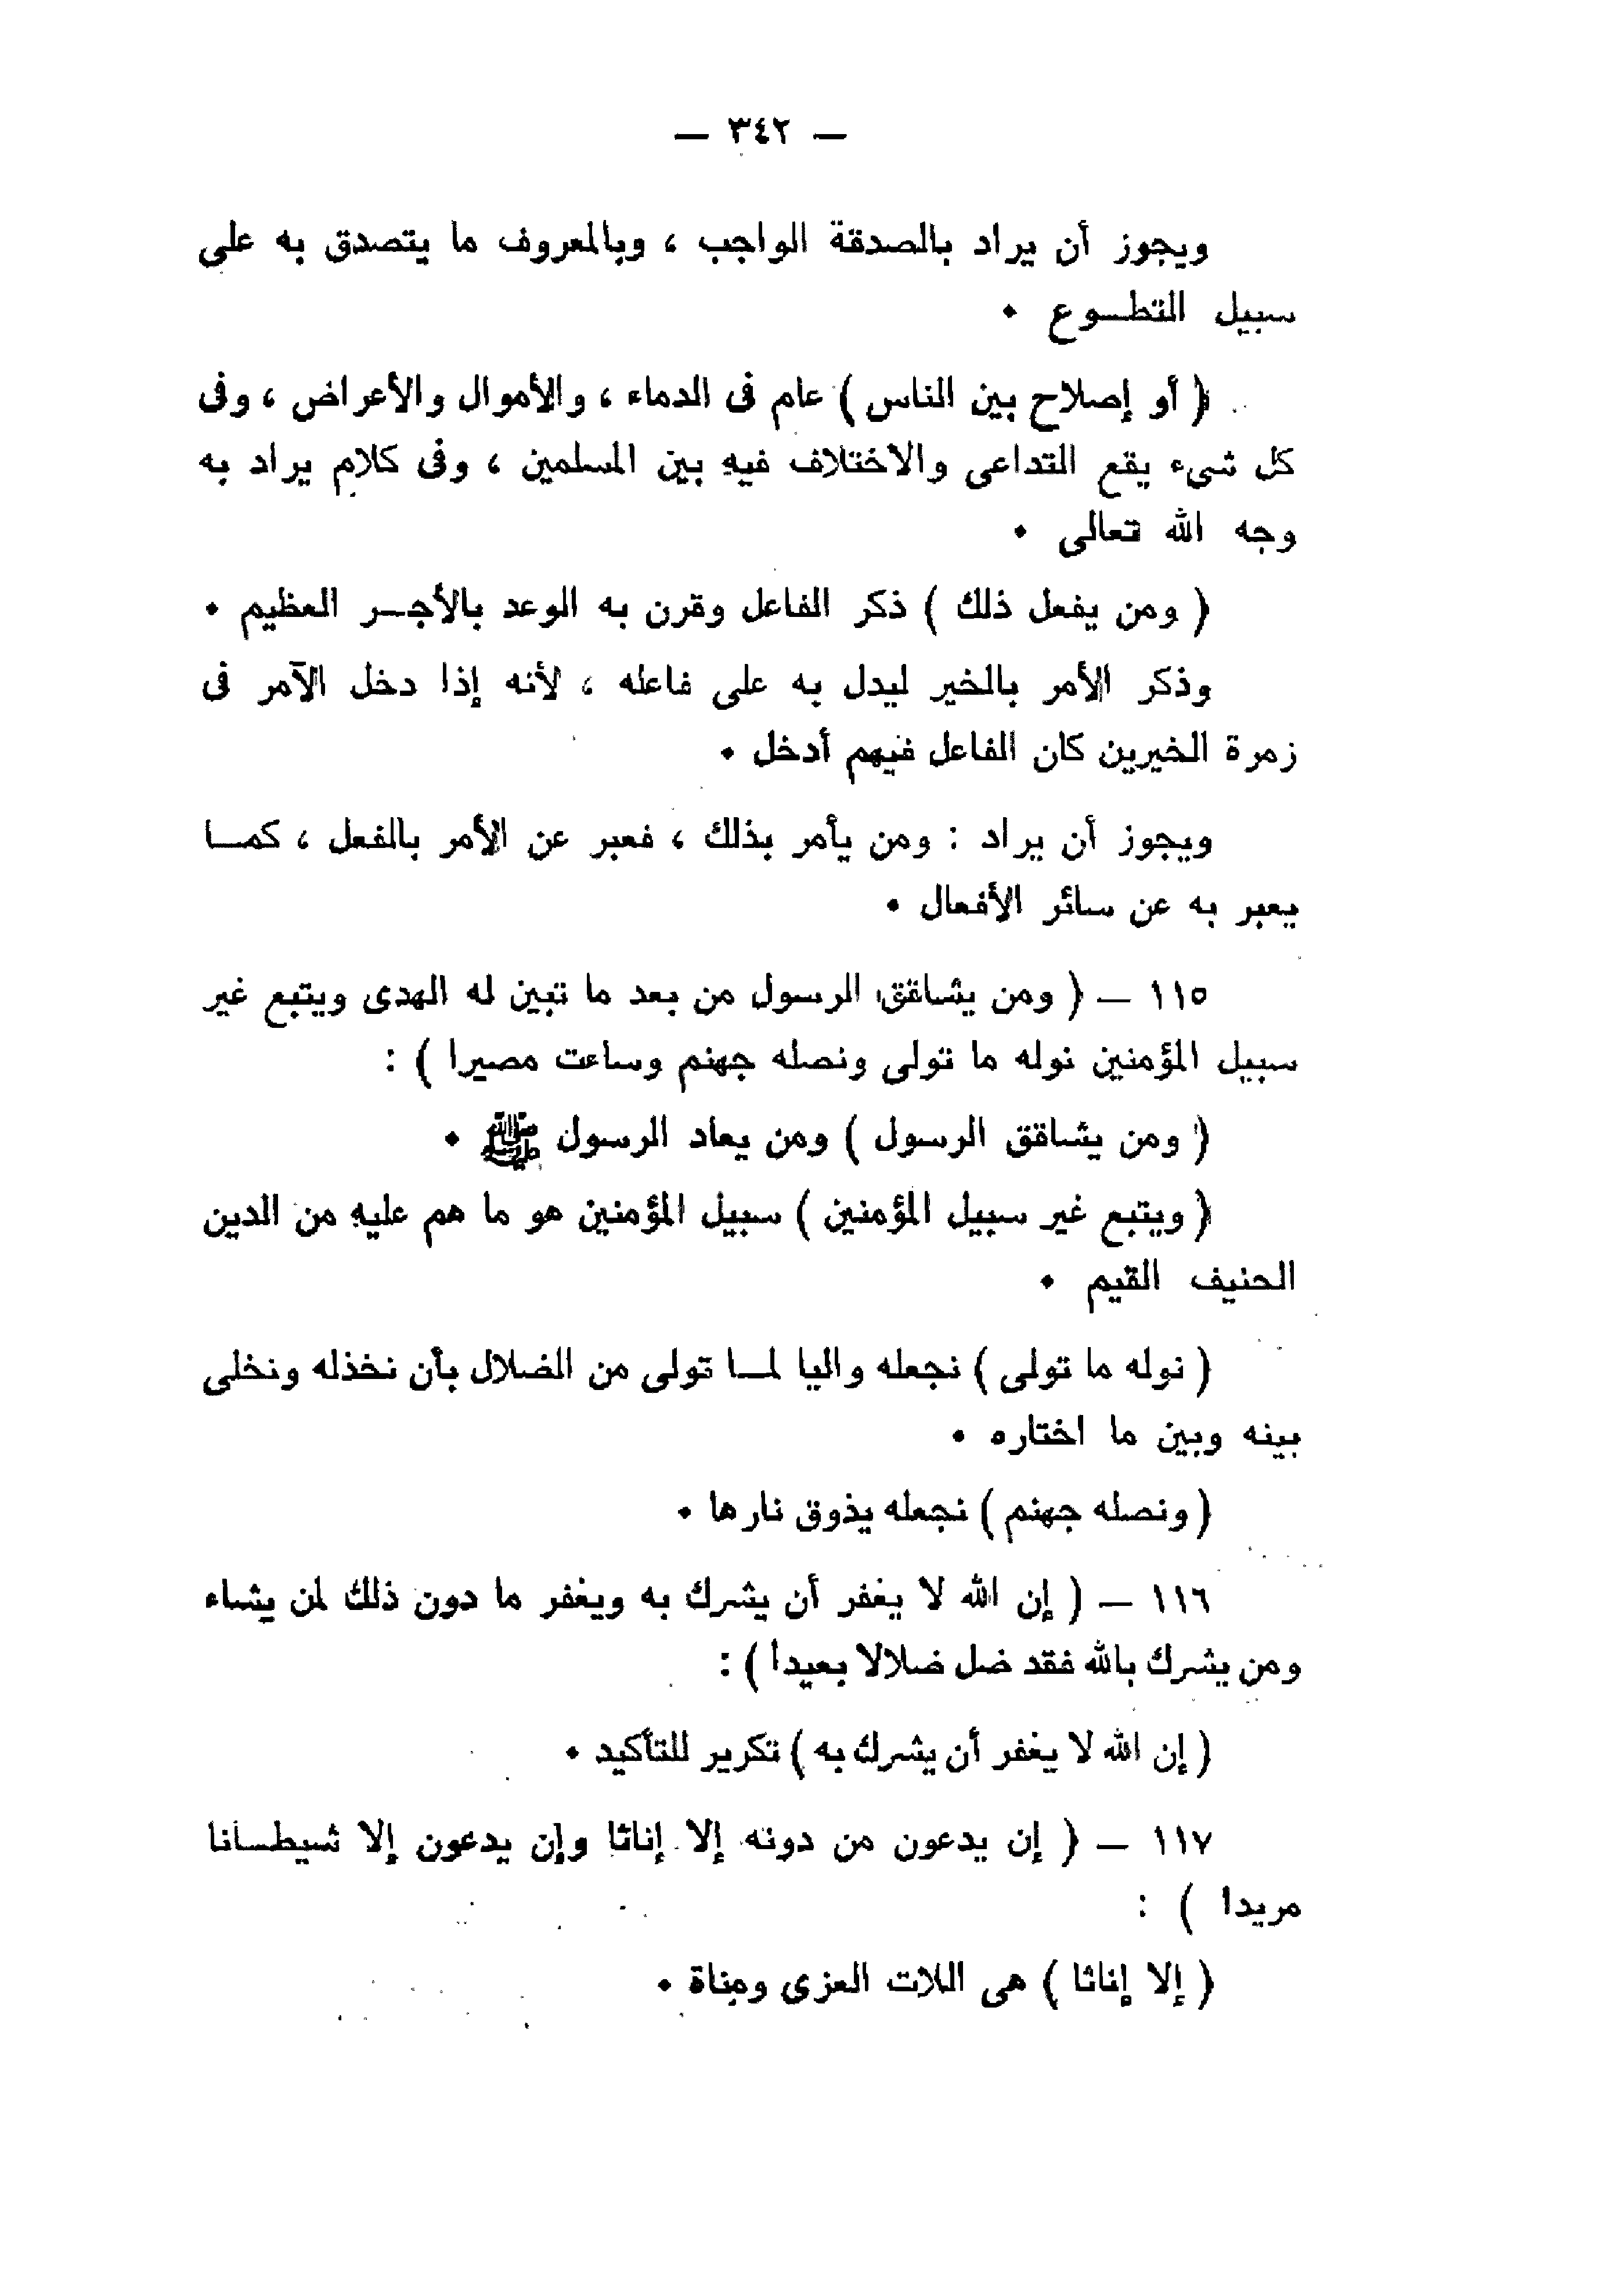 — ٣٤٢ —
ويجوز أن يراد بالصدقة الواجب ، وبالمعروف ما يتصدق به على
سبيل التطـوع ٠
( أو إصلاح بين الناس ) عام فى الدماء ، والأموال والأعراض ، وفى
كل شىء يقع التداعى والاختلاف فيه بين المسلمين ، وفى كلام يراد به
وجه الله تعالى ٠
( ومن يفعل ذلك ) ذكر الفاعل وقرن به الوعد بالأجـر العظيم ٠
وذكر الأمر بالخير ليدل به على فاعله ، لأنه إذا دخل الآمر فى
زمرة الخيرين كان الفاعل فيهم أدخل ٠
ويجوز أن يراد : ومن يأمر بذلك ، فعبر عن الأمر بالفعل ، كمـا
يعبر به عن سائر الأفعال ٠
١١٥ — ( ومن يشاقق الرسول من بعد ما تبين له الهدى ويتبع غير
سبيل المؤمنين نوله ما تولى ونصله جهنم وساعت مصيرا ) :
( ومن يشاقق الرسول ) ومن يعاد الرسول ﷺ ٠
( ويتبع غير سبيل المؤمنين ) سبيل المؤمنين هو ما هم عليه من الدين
الحنيف القيم ٠
( نوله ما تولى ) نجعله واليا لمـا تولى من الضلال بأن نخذله ونخلى
بينه وبين ما اختاره ٠
( ونصله جهنم ) نجعله يذوق نارها ٠
١١٦ — ( إن الله لا يغفر أن يشرك به ويغفر ما دون ذلك لمن يشاء
ومن يشرك بالله فقد ضل ضلالا بعيدا ) :
( إن الله لا يغفر أن يشرك به ) تكرير للتأكيد ٠
١١٧ — ( إن يدعون من دونه إلا إناثا وإن يدعون إلا شيطـانا
مريدا ) :
( إلا إناثا ) هى اللات العزى ومناة ٠